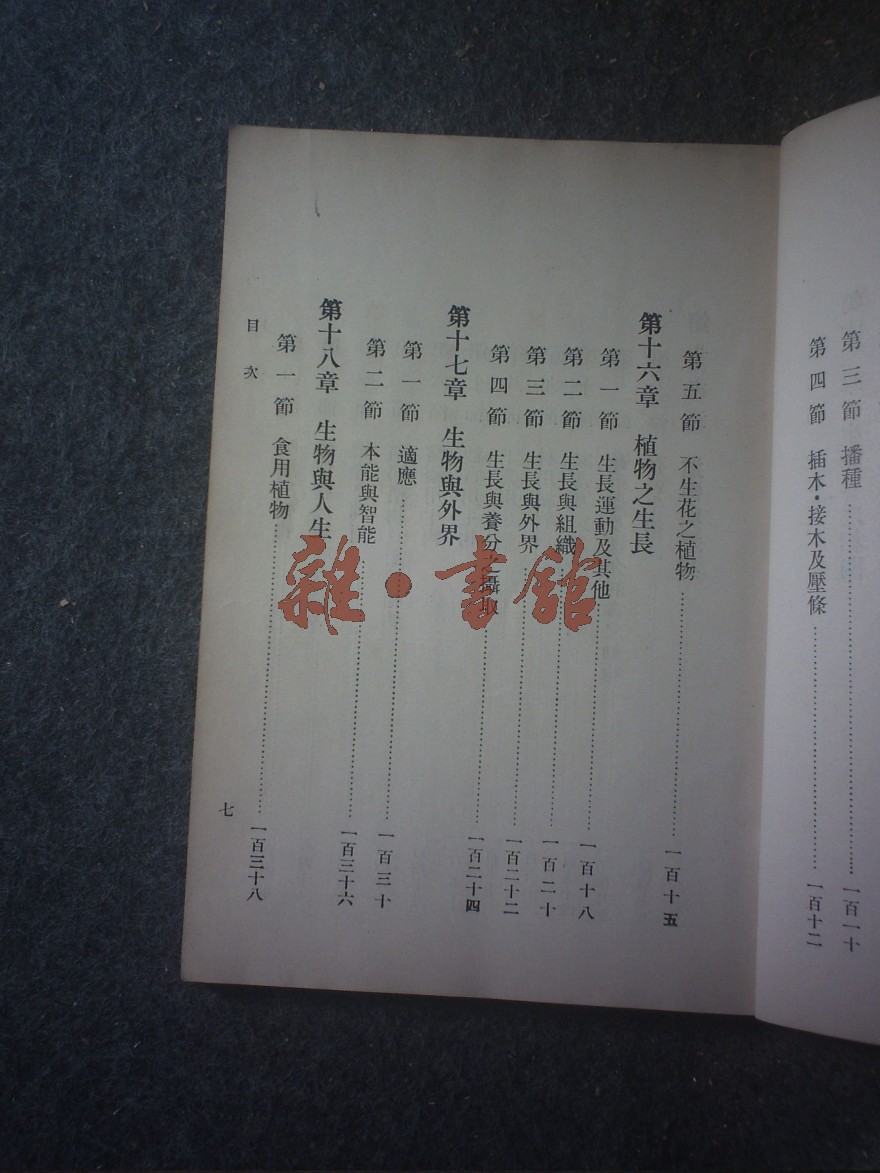 第三節　播種……一百一十
第四節　插木・接木及壓條……一百十二
第五節　不生花之植物……一百十五
第十六章　植物之生長
第一節　生長運動及其他……一百十八
第二節　生長與組織……一百二十
第三節　生長與外界……一百二十二
第四節　生長與養分之攝取……一百二十四
第十七章　生物與外界
第一節　適應……一百三十
第二節　本能與智能……一百三十六
第十八章　生物與人生
第一節　食用植物……一百三十八
目次
七
雜・書館